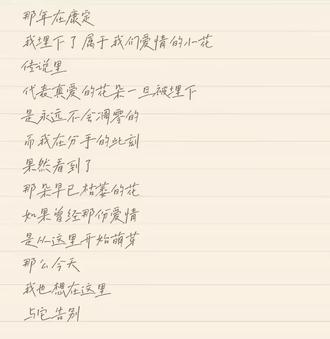 那年在康定
我埋下了属于我们爱情的小花
传说里
代表真爱的花朵一旦被埋下
是永远不会凋零的
而我在分手的此刻
果然看到了
那朵早已枯萎的花
如果曾经那份爱情
是从这里开始萌芽
那么今天
我也想在这里
与它告别